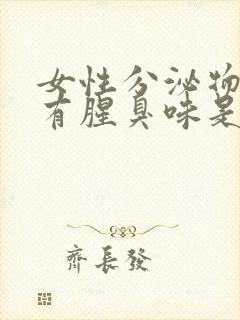 女性分泌物
有腥臭味是
齊長發